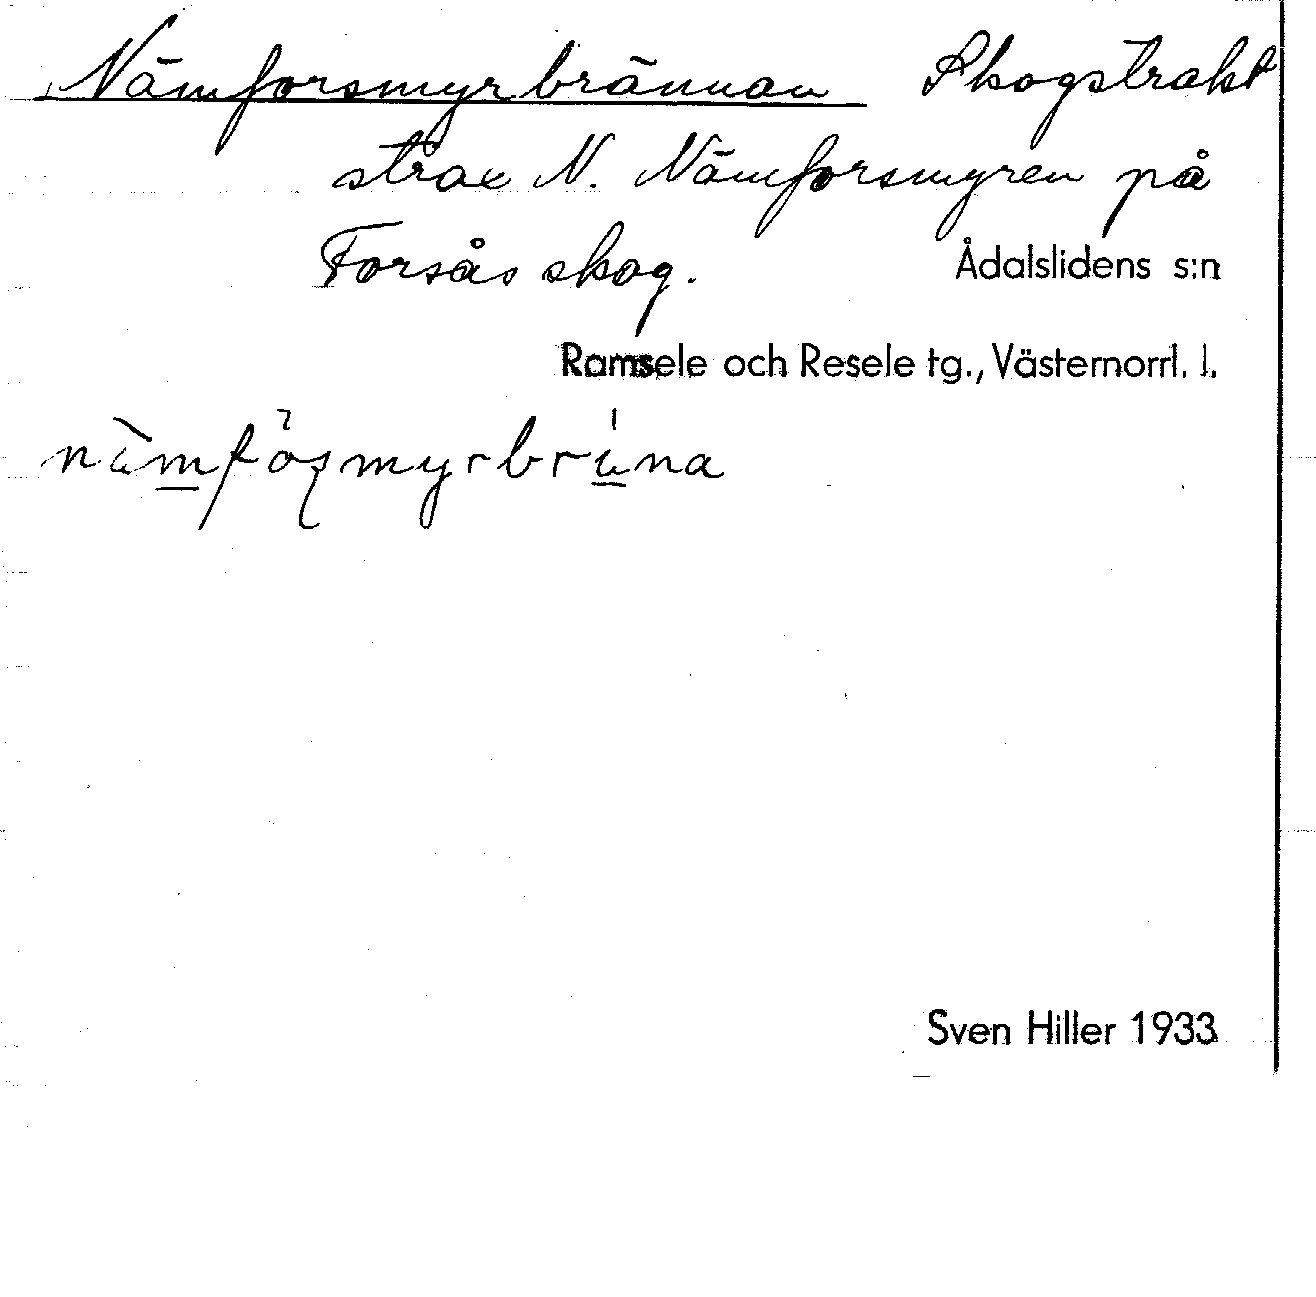 Nämforsmyrbrännan Skogstrakt
strax N. Nämforsmyren på
Forsås skog.
Ådalslidens s:n
Ramsele och Resele tg., Västernorrl. l.
Sven Hiller 1933